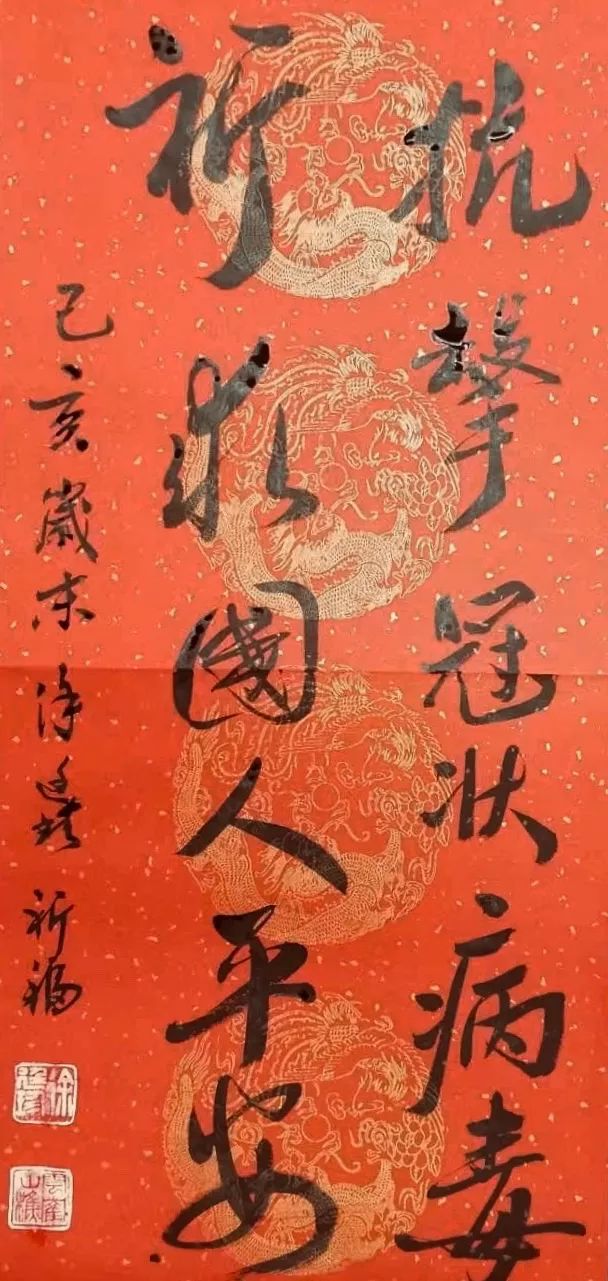 抗擊冠狀病毒
祈求國人平安
己亥歲末徐 祈福